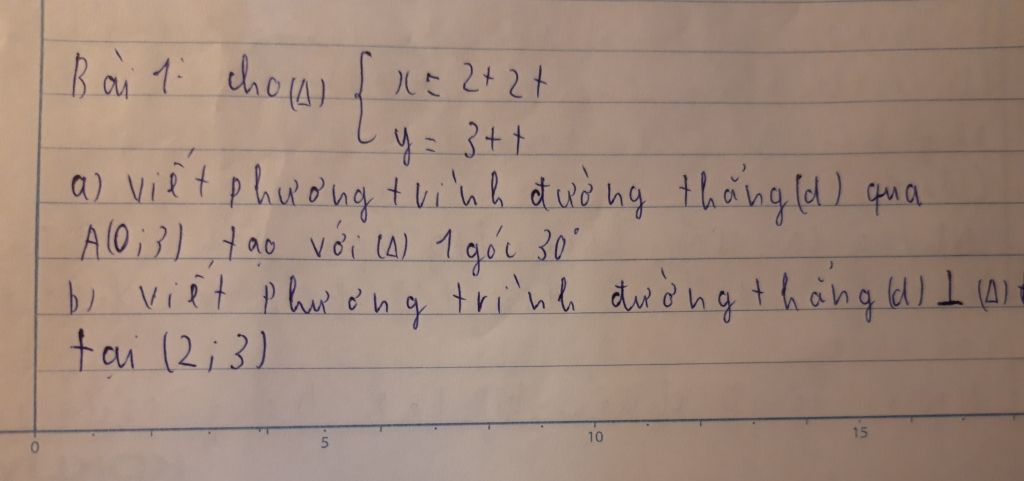 Bài 1: cho (Δ) { x = 2 + 2t
y = 3 + t
a) viết phương trình đường thẳng (d) qua
A(0; 3) tạo với (Δ) 1 góc 30°
b) viết phương trình đường thẳng (d) ⊥ (Δ)
tại (2; 3)
0 5 10 15